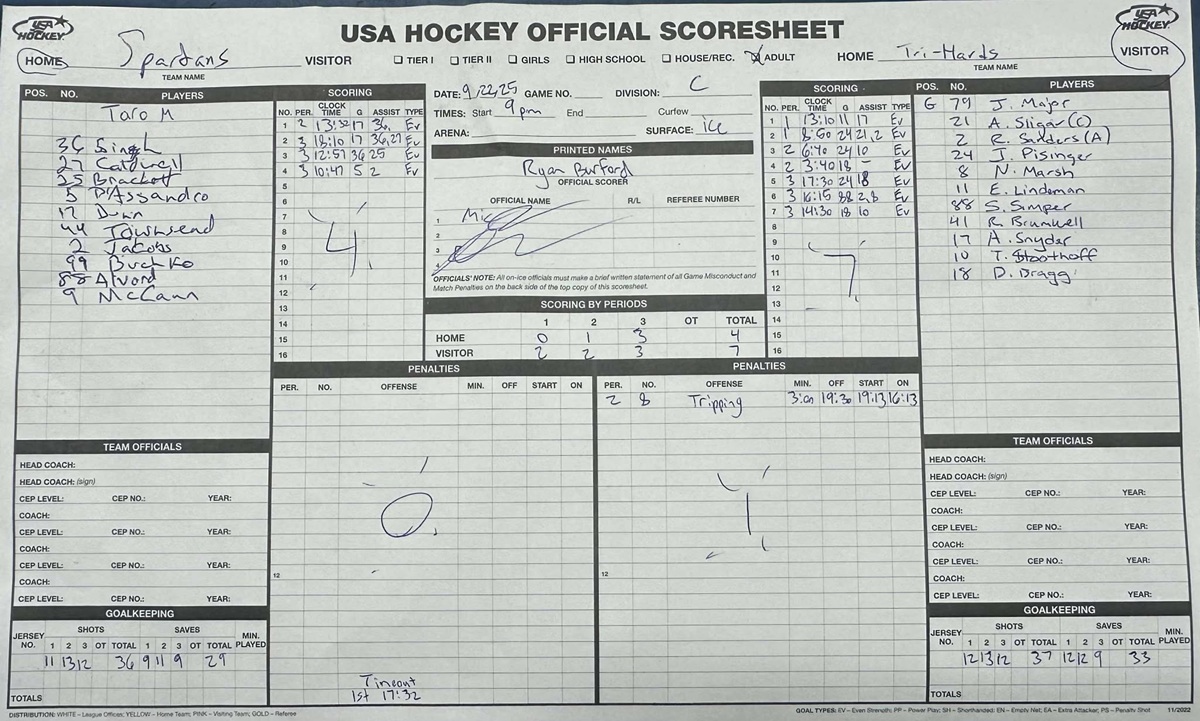 USA HOCKEY
USA HOCKEY OFFICIAL SCORESHEET
USA HOCKEY
HOME Spartans VISITOR ☐ TIER I ☐ TIER II ☐ GIRLS ☐ HIGH SCHOOL ☐ HOUSE/REC. ☒ ADULT HOME Tri-Hards VISITOR
TEAM NAME TEAM NAME
POS. NO. PLAYERS
Taro M
36 Singh
27 Catawall
25 Brackett
5 D'Assandro
17 Dunn
44 Townsend
2 Jacobs
99 Buchko
88 Alvord
9 McCann
SCORING
NO. PER. CLOCK TIME G ASSIST TYPE
1 2 13:32 17 36, Ev
2 3 18:10 17 36,27 Ev
3 3 12:57 36 25 Ev
4 3 10:47 5 2 Ev
5
6
7
8
9
10
11
12
13
14
15
16
4
DATE: 9/22/25 GAME NO. DIVISION: C
TIMES: Start 9pm End Curfew
ARENA: SURFACE: ice
PRINTED NAMES
Ryan Burford
OFFICIAL SCORER
OFFICIAL NAME R/L REFEREE NUMBER
1
2
3
4
OFFICIALS' NOTE: All on-ice officials must make a brief written statement of all Game Misconduct and
Match Penalties on the back side of the top copy of this scoresheet.
SCORING BY PERIODS
1 2 3 OT TOTAL
HOME 0 1 3 4
VISITOR 2 2 3 7
SCORING
NO. PER. CLOCK TIME G ASSIST TYPE
1 1 13:10 11 17 Ev
2 1 8:50 24 21,2 Ev
3 2 6:40 24 10 Ev
4 2 3:40 18 – Ev
5 3 17:30 24 18 Ev
6 3 16:15 88 2,8 Ev
7 3 14:30 18 10 Ev
8
9
10
11
12
13
14
15
16
7
POS. NO. PLAYERS
G 79 J. Major
21 A. Sligar (C)
2 R. Sanders (A)
24 J. Pisinger
8 N. Marsh
11 E. Lindeman
88 S. Simper
41 R. Brumwell
17 A. Snyder
10 T. Stoothoff
18 D. Bragg
PENALTIES
PER. NO. OFFENSE MIN. OFF START ON
0
12
Timeout
1st 17:32
PENALTIES
PER. NO. OFFENSE MIN. OFF START ON
2 8 Tripping 3:00 19:30 19:13 16:13
1
12
TEAM OFFICIALS
HEAD COACH:
HEAD COACH: (sign)
CEP LEVEL: CEP NO.: YEAR:
COACH:
CEP LEVEL: CEP NO.: YEAR:
COACH:
CEP LEVEL: CEP NO.: YEAR:
COACH:
CEP LEVEL: CEP NO.: YEAR:
GOALKEEPING
JERSEY NO. SHOTS SAVES MIN. PLAYED
1 2 3 OT TOTAL 1 2 3 OT TOTAL
11 13 12 36 9 11 9 29
TOTALS
TEAM OFFICIALS
HEAD COACH:
HEAD COACH: (sign)
CEP LEVEL: CEP NO.: YEAR:
COACH:
CEP LEVEL: CEP NO.: YEAR:
COACH:
CEP LEVEL: CEP NO.: YEAR:
COACH:
CEP LEVEL: CEP NO.: YEAR:
GOALKEEPING
JERSEY NO. SHOTS SAVES MIN. PLAYED
1 2 3 OT TOTAL 1 2 3 OT TOTAL
12 13 12 37 12 12 9 33
TOTALS
DISTRIBUTION: WHITE – League Offices; YELLOW – Home Team; PINK – Visiting Team; GOLD – Referee
GOAL TYPES: EV – Even Strength; PP – Power Play; SH – Shorthanded; EN – Empty Net; EA – Extra Attacker; PS – Penalty Shot 11/2022